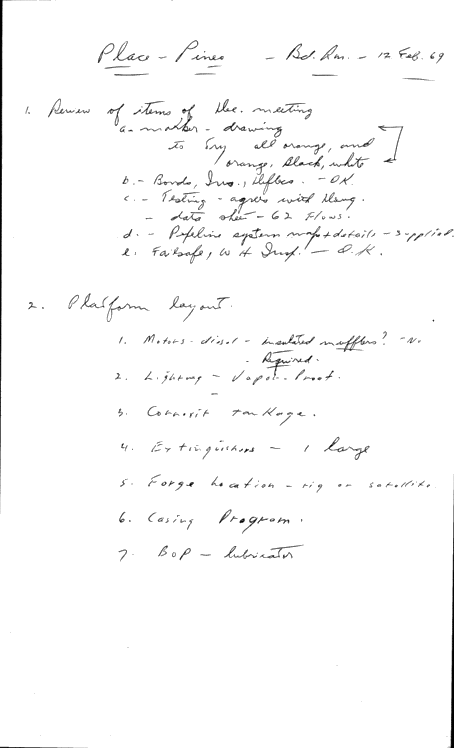 Place - Pines - Bd. Rm. - 12 Feb. 69
1. Review of items of Dec. meeting
a - marker - drawing
to try all orange, and
orange, black, white
b. - Bonds, Ins., - OK.
c. - Testing - agrees with
- data sheet - 62 Flows.
d. - Pipeline system map + details - supplied.
e. Failsafe, W H Insp. - O.K.
2. Platform layout.
1. Motors - diesel - insulated mufflers? - No
- Required.
2. Lighting - Vapor - Proof.
3. tankage.
4. Extinguishers - 1 large
5. Forge Location - rig or satellite.
6. Casing Program.
7. BOP - lubricator